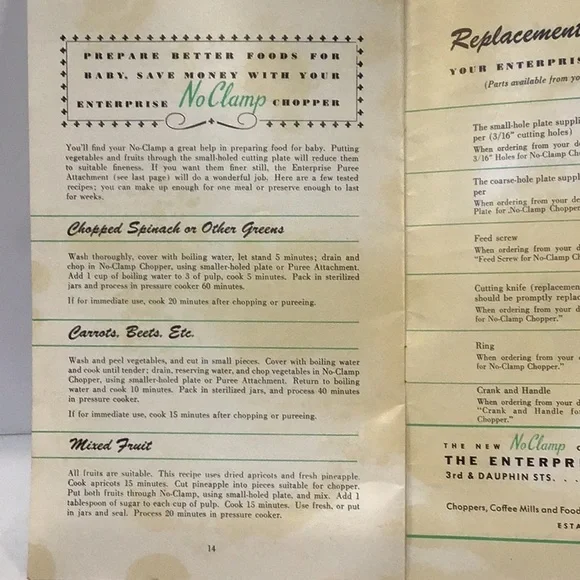 PREPARE BETTER FOODS FOR
BABY, SAVE MONEY WITH YOUR
ENTERPRISE NoClamp CHOPPER
You'll find your No-Clamp a great help in preparing food for baby. Putting
vegetables and fruits through the small-holed cutting plate will reduce them
to suitable fineness. If you want them finer still, the Enterprise Puree
Attachment (see last page) will do a wonderful job. Here are a few tested
recipes; you can make up enough for one meal or preserve enough to last
for weeks.
Chopped Spinach or Other Greens
Wash thoroughly, cover with boiling water, let stand 5 minutes; drain and
chop in No-Clamp Chopper, using smaller-holed plate or Puree Attachment.
Add 1 cup of boiling water to 3 of pulp, cook 5 minutes. Pack in sterilized
jars and process in pressure cooker 60 minutes.
If for immediate use, cook 20 minutes after chopping or pureeing.
Carrots, Beets, Etc.
Wash and peel vegetables, and cut in small pieces. Cover with boiling water
and cook until tender; drain, reserving water, and chop vegetables in No-Clamp
Chopper, using smaller-holed plate or Puree Attachment. Return to boiling
water and cook 10 minutes. Pack in sterilized jars, and process 40 minutes
in pressure cooker.
If for immediate use, cook 15 minutes after chopping or pureeing.
Mixed Fruit
All fruits are suitable. This recipe uses dried apricots and fresh pineapple.
Cook apricots 15 minutes. Cut pineapple into pieces suitable for chopper.
Put both fruits through No-Clamp, using small-holed plate, and mix. Add 1
tablespoon of sugar to each cup of pulp. Cook 15 minutes. Use fresh, or put
in jars and seal. Process 20 minutes in pressure cooker.
14
Replacement
YOUR ENTERPRIS
(Parts available from yo
The small-hole plate suppli
per (3/16" cutting holes)
When ordering from your de
3/16" Holes for No-Clamp Cho
The coarse-hole plate suppl
per
When ordering from your de
Plate for No-Clamp Chopper
Feed screw
When ordering from your d
"Feed Screw for No-Clamp C
Cutting knife (replacemen
should be promptly replac
When ordering from your d
for No-Clamp Chopper."
Ring
When ordering from your d
for No-Clamp Chopper."
Crank and Handle
When ordering from your d
"Crank and Handle fo
Chopper."
THE NEW NoClamp C
THE ENTERPR
3rd & DAUPHIN STS. . .
Choppers, Coffee Mills and Food
ESTA